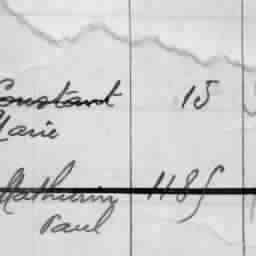 Constant 15
Marie
Mathurin 118
Paul